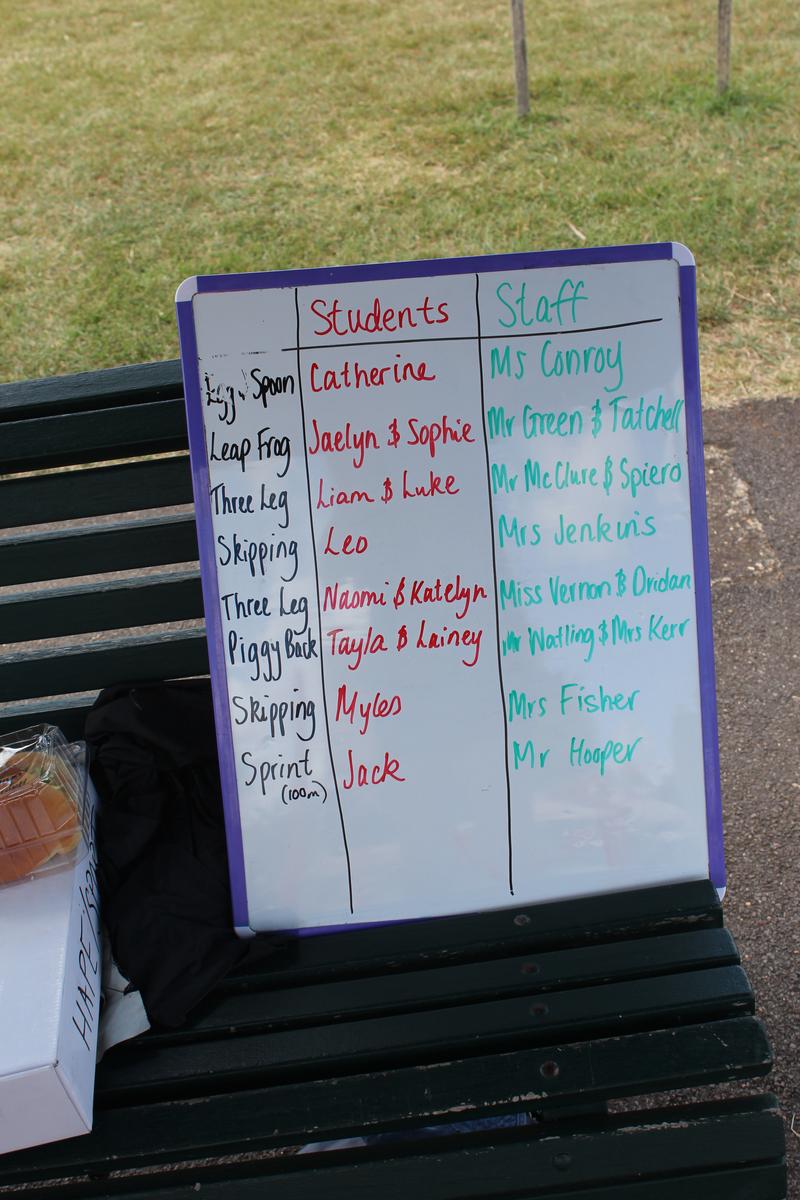 Students Staff
Egg & Spoon Catherine Ms Conroy
Leap Frog Jaelyn & Sophie Mr Green & Tatchell
Three Leg Liam & Luke Mr McClure & Spiero
Skipping Leo Mrs Jenkins
Three Leg Naomi & Katelyn Miss Vernon & Dridan
Piggy Back Tayla & Lainey Mr Watling & Mrs Kerr
Skipping Myles Mrs Fisher
Sprint Jack Mr Hooper
(100m)